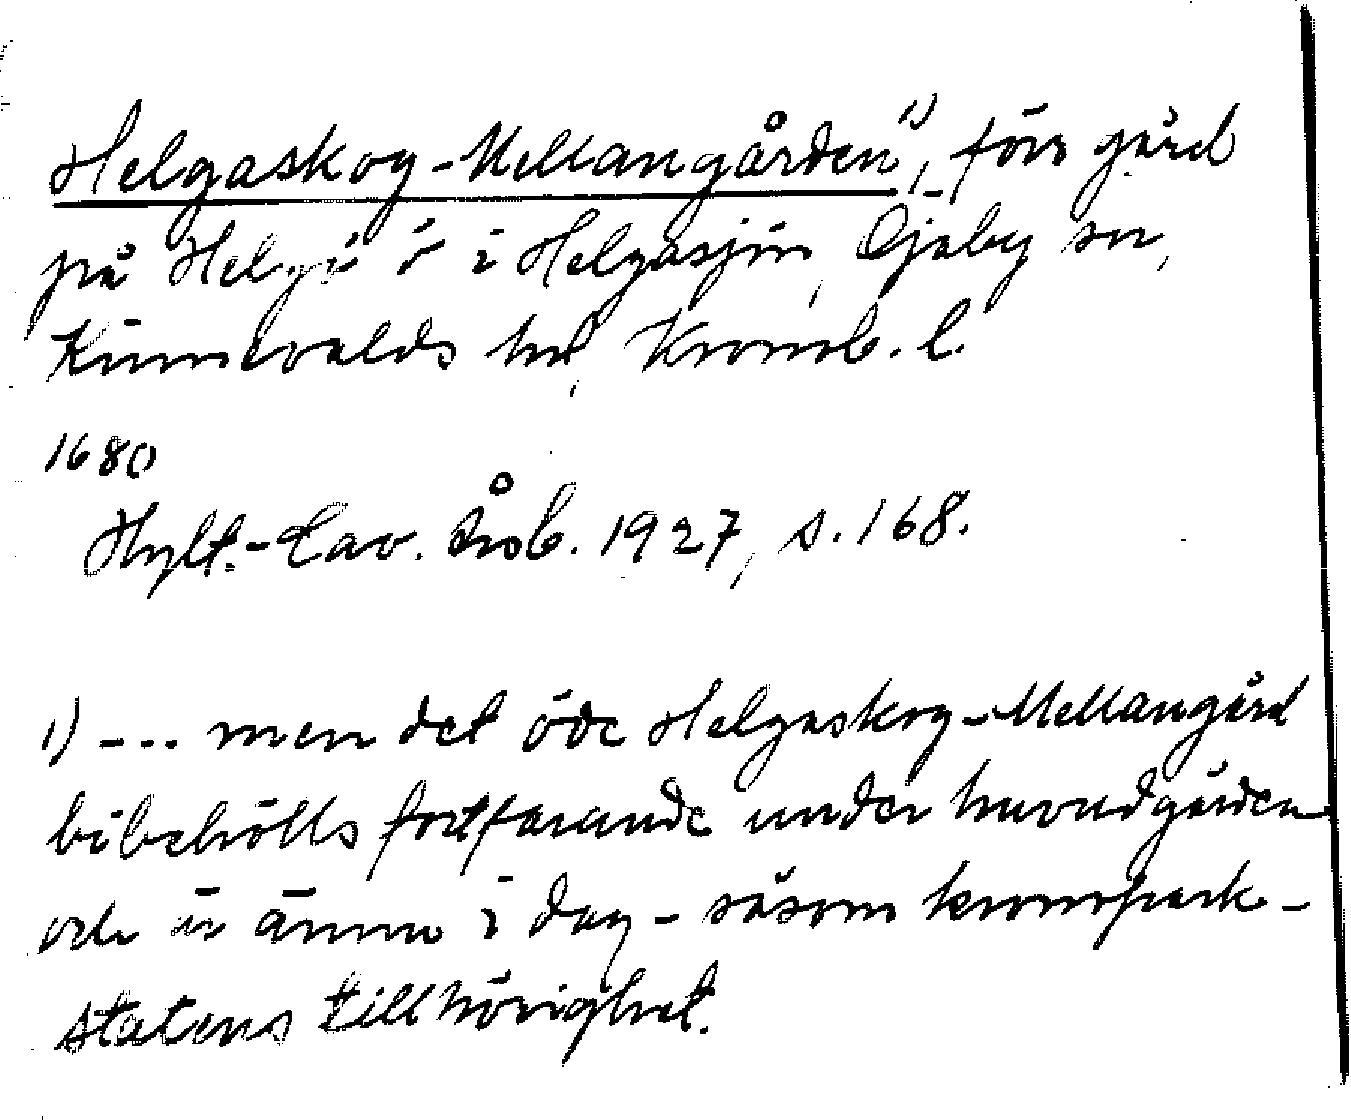 Helgaskog-Mellangården¹⁾, förr gård
på Helgö ö i Helgasjön, Öjaby sn,
Kinnevalds hd, Kronob. l.
1680
Hylt.-Cav. Årsb. 1927, s. 168.
1) --.. men det öde Helgaskog-Mellangård
bibehölls fortfarande under huvudgården
och är ännu i dag - såsom kronopark -
statens tillhörighet.